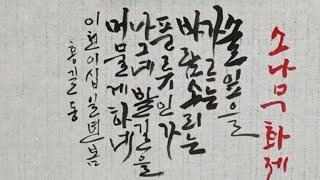 소나무화제
솔잎을
가르는
바람소리는
풍류인가
나그네 발길을
머물게하네
이천이십일년봄
홍길동